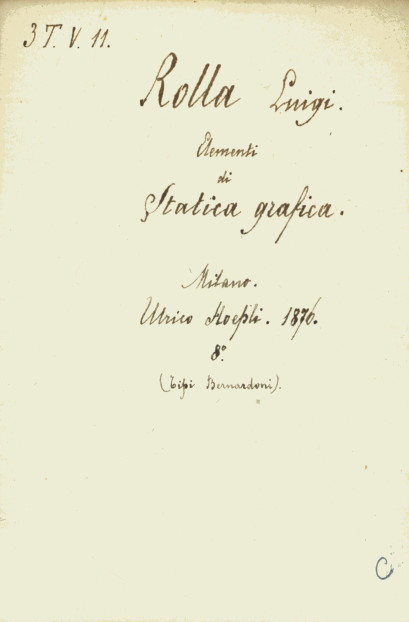 3 T. V. 11.
Rolla Luigi.
Elementi
di
Statica grafica.
Milano.
Ulrico Hoepli. 1876.
8°
(Tipi Bernardoni).
C